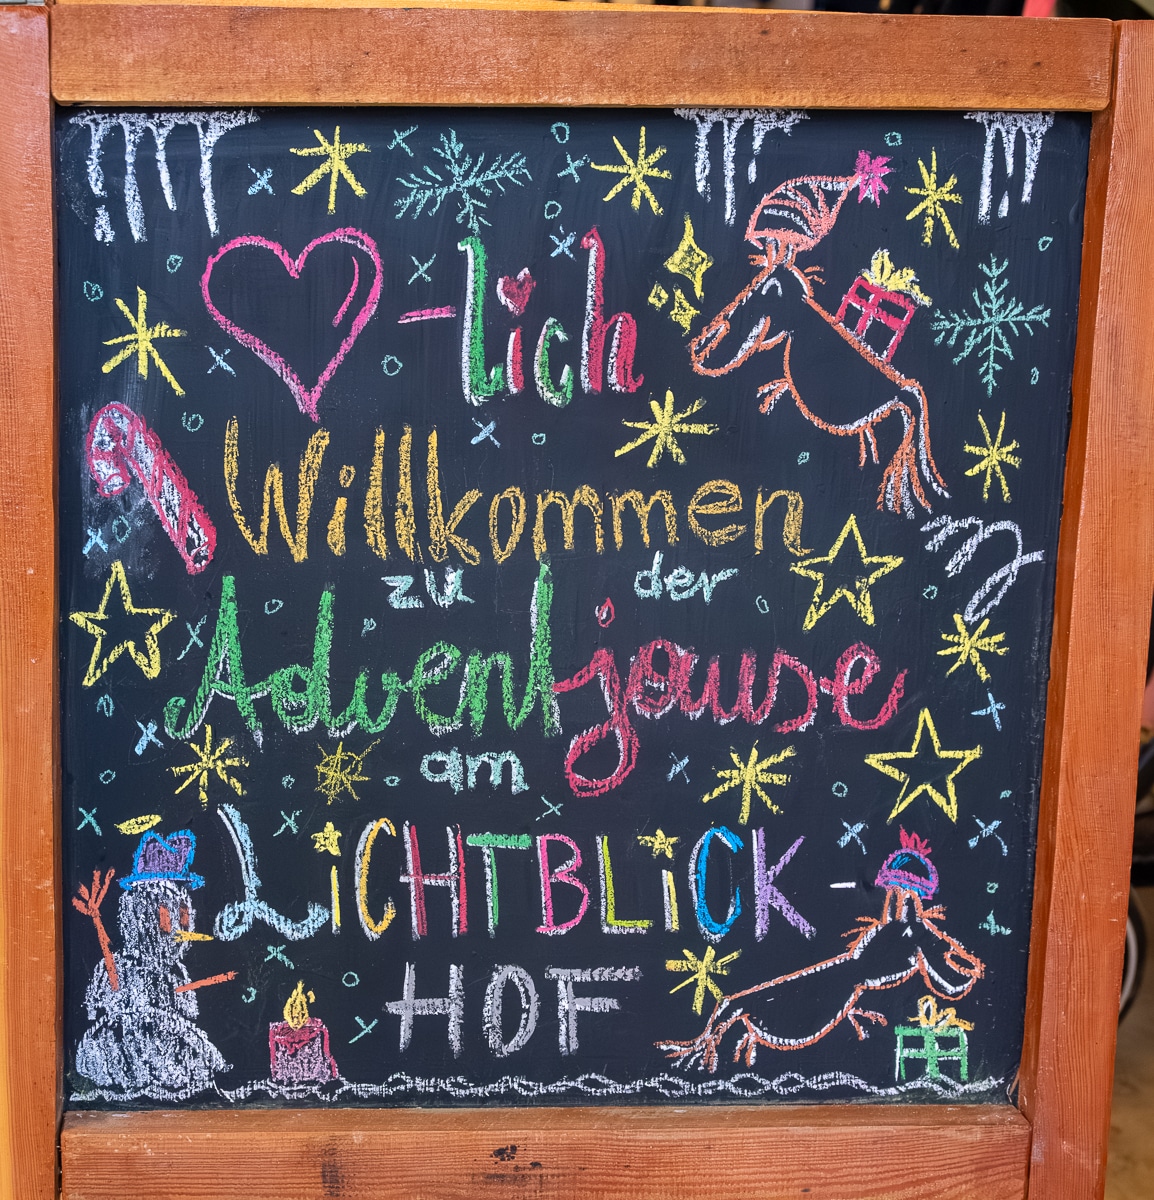 ♥-lich
Willkommen
zu der
Adventjause
am
LiCHTBLiCK-
HOF